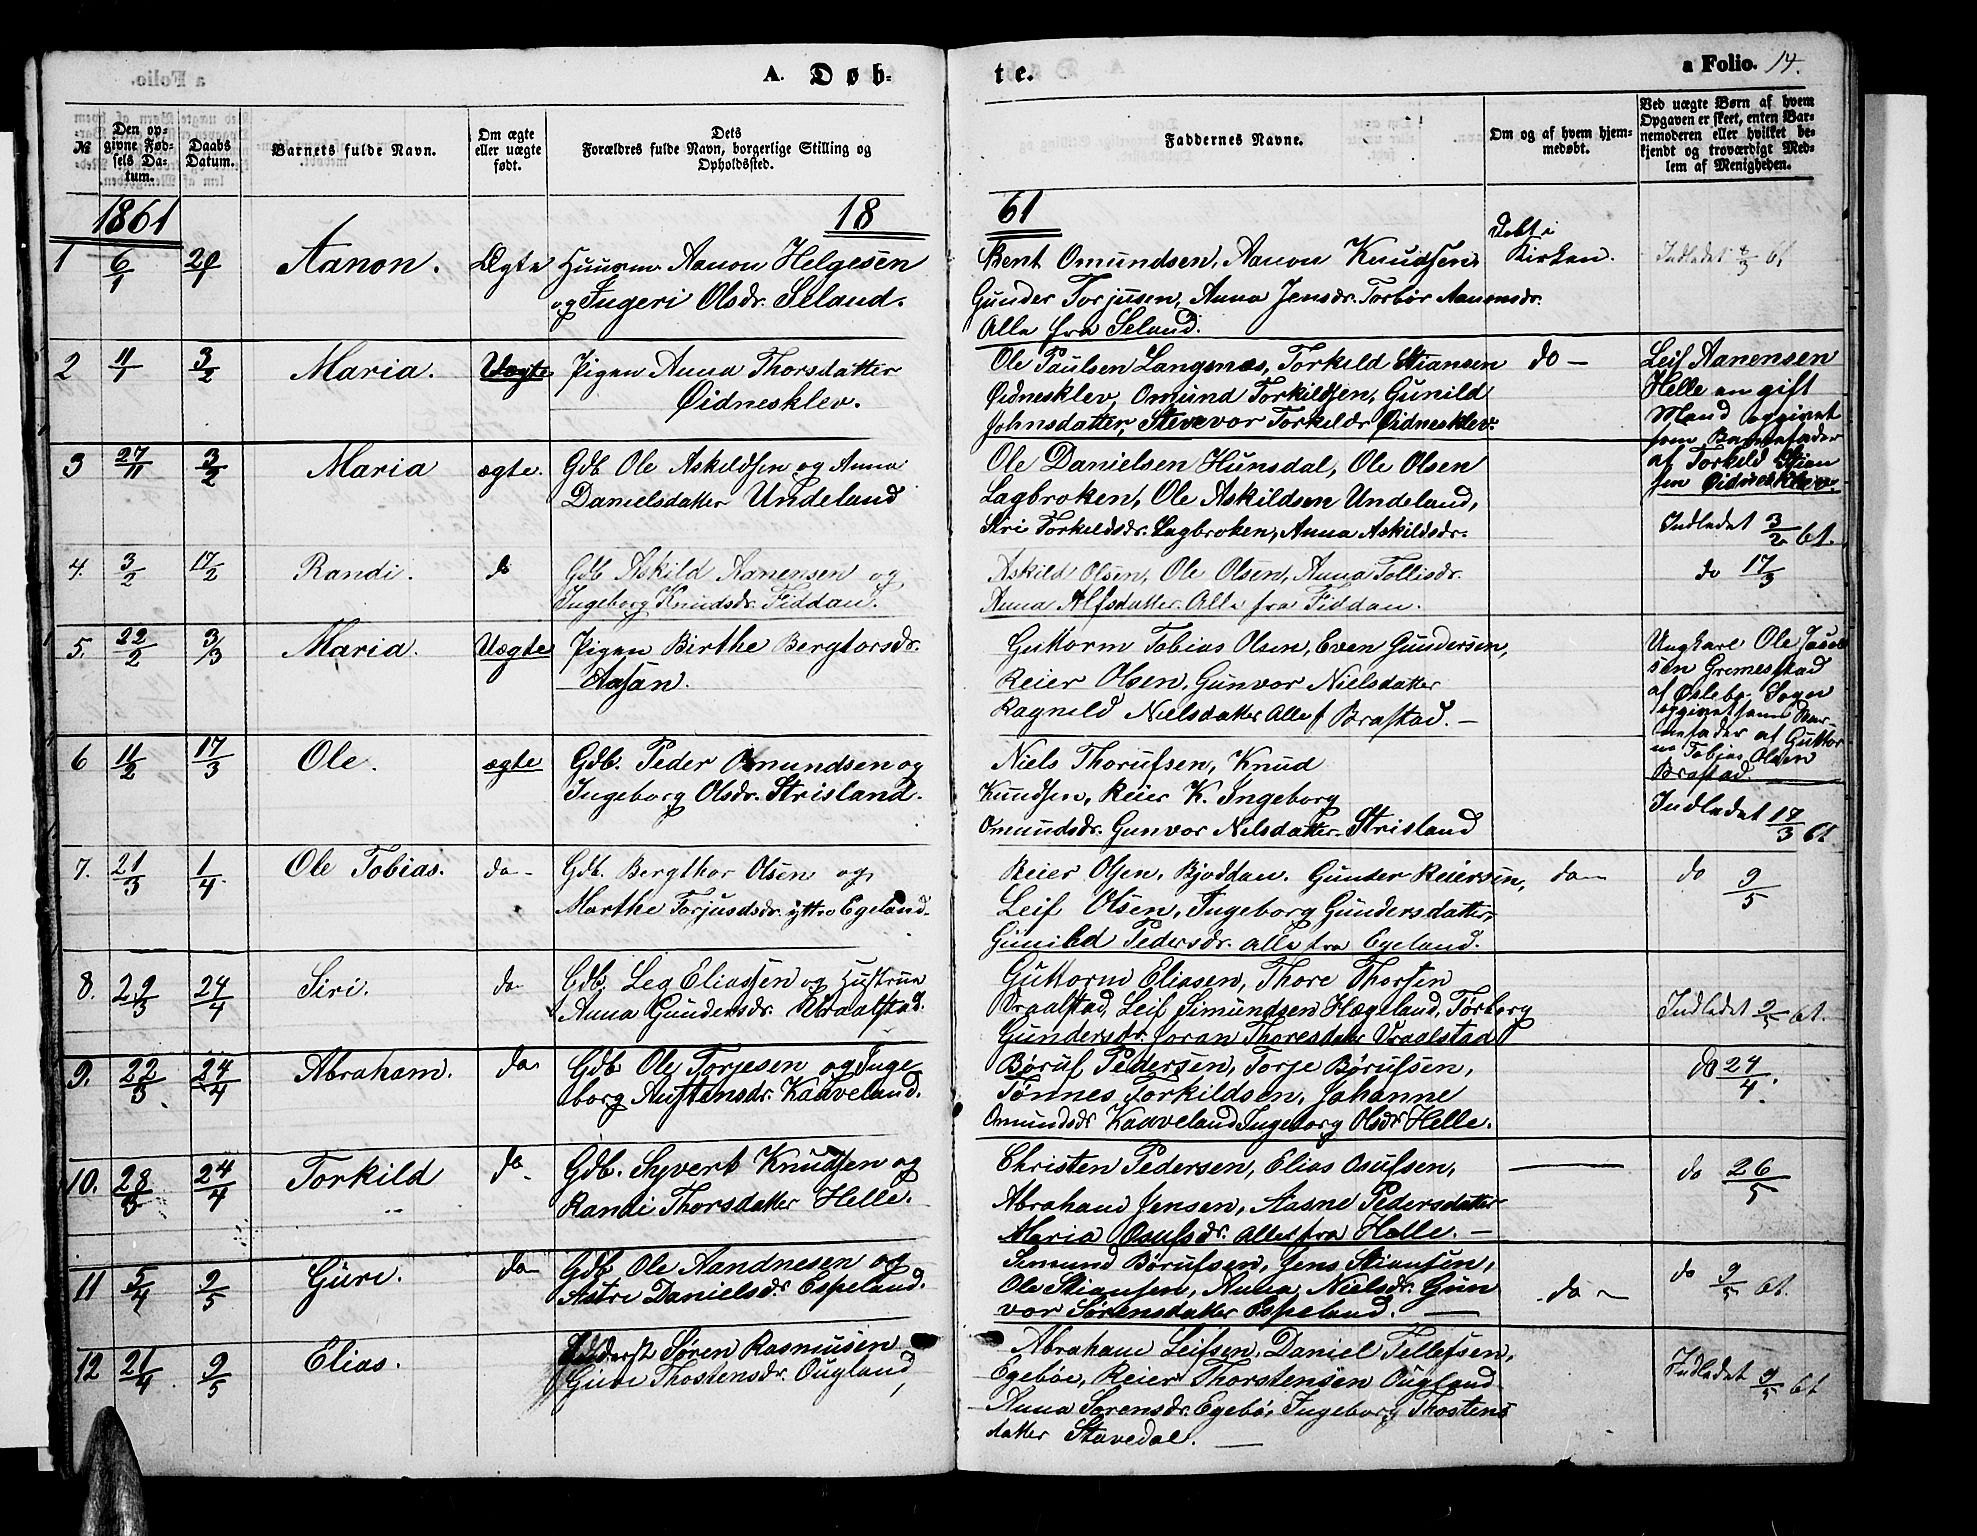 A. Døb-
te.
a Folio. 14.
№
Den op-
givne Fød-
sels Da-
tum.
Daabs
Datum.
Barnets fulde Navn.
Om ægte
eller uægte
født.
Dets
Forældres fulde Navn, borgerlige Stilling og
Opholdssted.
Faddernes Navne.
Om og af hvem hjem-
medøbt.
Ved uægte Børn af hvem
Opgaven er skeet, enten Bar-
nemoderen eller hvilket be-
kjendt og troværdigt Med-
lem af Menigheden.
1861
18
61
1 6/1 20/1 Aanon. Ægte Huusm. Aanon Helgesen
og Ingeri Olsdr. Seland.
Bent Omundsen, Aanon Knudsen
Gunder Torjusen, Anna Jensdr. Torbør Aanonsdr.
Alle fra Seland.
Døbt i
Kirken.
Indledet 3/3 61
2 11/1 3/2 Maria. Uægte Pigen Anna Thorsdatter
Øidnesklev.
Ole Paulsen Langenæs, Torkild Stiansen
Øidnesklev, Omund Torkildsen, Gunild
Johnsdatter, Stevevor Torkildr Øidnesklev.
do -
Leif Aanensen
Helle en gift
Mand opgivet
som Barnefader
af Torkild Stian
sen Øidnesklev.
3 27/11 3/2 Maria ægte. Gdb. Ole Askildsen og Anna
Danielsdatter Undeland
Ole Danielsen Hunsdal, Ole Olsen
Lagbroken, Ole Askildsen Undeland,
Siri Torkildsdr. Lagbroken, Anna Askildsdr.
Indledet 3/2 61.
4. 3/2 17/2 Randi. do Gdb. Askild Aanensen og
Ingeborg Knudsdr. Fiddan.
Askild Olsen, Ole Olsen, Anna Tollisdr.
Anna Alfsdatter. Alle fra Fiddan.
do 17/3
5. 22/2 3/3 Maria. Uægte Pigen Birthe Bergtorsdr.
Aasan.
Guttorm Tobias Olsen, Even Gundersen,
Reier Olsen, Gunvor Nielsdatter
Ragnild Nielsdatter Alle f Brastad. -
Ungkarl Ole Jacob
sen Gremestad
af Øslebø Sogn
opgivet som Bar-
nefader af Guttor-
m Tobias Olsen
Brastad.
6 11/2 17/3 Ole. ægte Gdb. Peder Omundsen og
Ingeborg Olsdr. Strisland.
Niels Thorufsen, Knud
Knudsen, Reier K. Ingeborg
Omundsdr. Gunvor Nilsdatter Strisland
Indledet 17/3 61
7. 21/3 1/4. Ole Tobias. do - Gdb. Bergthor Olsen og
Marthe Torjusdsdr. yttre Egeland.
Reier Olsen, Bjoddan. Gunder Reiersen,
Leif Olsen, Ingeborg Gundersdatter,
Gunild Pedersdr. alle fra Egeland.
do -
do 9/5
8. 29/3 24/4 Siri. do Gdb. Leg Eliassen og Hustrue
Anna Gundersdr. Vraalstad.
Guttorm Eliasen, Thore Thorsen
Vraalstad, Leif Simundsen Hægeland, Torborg
Gundersdr. Joran Thoresdatter Vraalstad
Indledet 2/5 61.
9. 22/3 24/4 Abraham. do. Gdb. Ole Torjesen og Inge-
borg Austensdr. Kaaveland.
Børuf Pedersen, Torje Børufsen,
Tønnes Torkildsen, Johanne
Omundsdr Kaaveland Ingeborg Olsdr Helle.
do 24/4.
10. 28/3 24/4 Torkild do Gdb. Syvert Knudsen og
Randi Thorsdatter Helle.
Christen Pedersen, Elias Osufsen,
Abraham Jensen, Aasne Pedersdatter
Maria Osufsdr. alle fra Helle. -
do 26/5
11 5/4 9/5 Guri. do Gdb. Ole Aandnesen og
Astri Danielsdr. Espeland.
Simund Børufsen, Jens Stiansen,
Ole Stiansen, Anna Nielsdr. Gun
vor Sørensdatter Espeland. -
do -
do 9/5 61.
12 21/4 9/5 Elias. Søren Rasmusen
Guri Thostensdr. Ougland,
Abraham Leifsen, Daniel Tellefsen,
Egebøe, Reier Thorstensen Ougland
Anna Sørensdr. Egebø, Ingeborg Thostens
datter Stavedal. -
Indledet 9/5 61